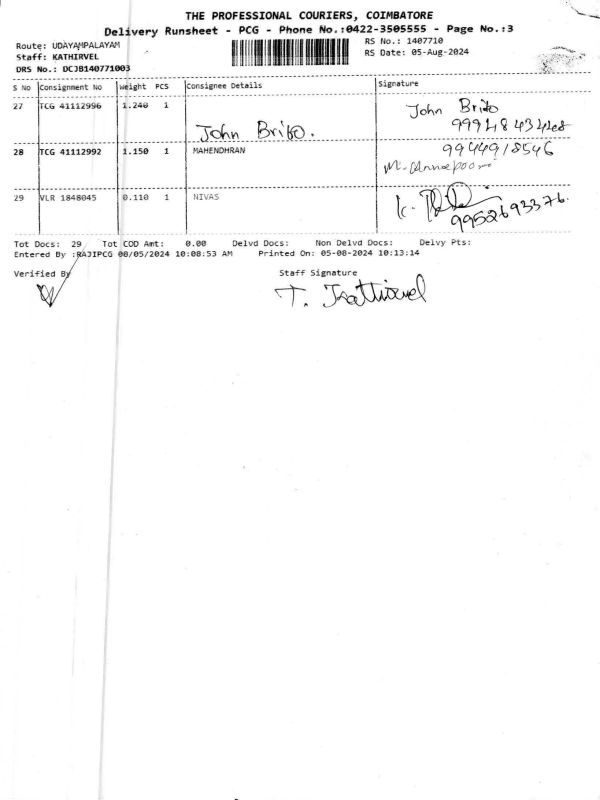 THE PROFESSIONAL COURIERS, COIMBATORE
Delivery Runsheet - PCG - Phone No.:0422-3505555 - Page No.:3
Route: UDAYAMPALAYAM
Staff: KATHIRVEL
DRS No.: DCJB140771003
RS No.: 1407710
RS Date: 05-Aug-2024
S No Consignment No Weight PCS Consignee Details Signature
27 TCG 41112996 1.240 1 John Brito. John Brito
28 TCG 41112992 1.150 1 MAHENDHRAN 9944918546
29 VLR 1848045 0.110 1 NIVAS 9952693376
Tot Docs: 29 Tot COD Amt: 0.00 Delvd Docs: Non Delvd Docs: Delvy Pts:
Entered By :RAJIPCG 08/05/2024 10:08:53 AM Printed On: 05-08-2024 10:13:14
Verified By Staff Signature
T. Kathirvel